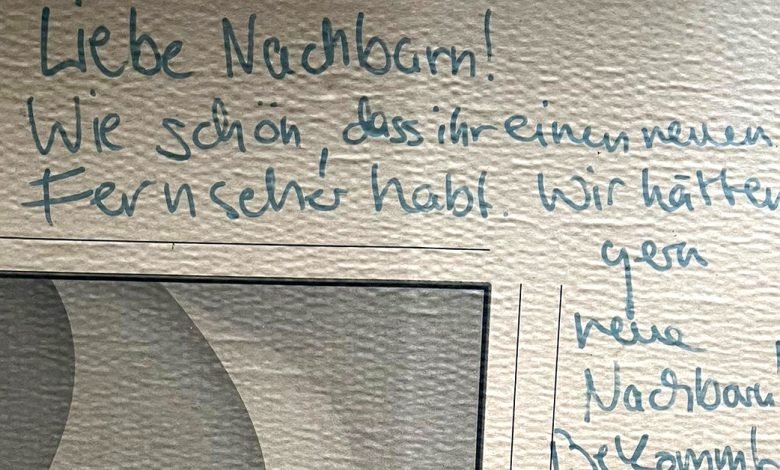 Liebe Nachbarn!
Wie schön, dass ihr einen neuen
Fernseher habt. Wir hätten
gern
neue
Nachbarn